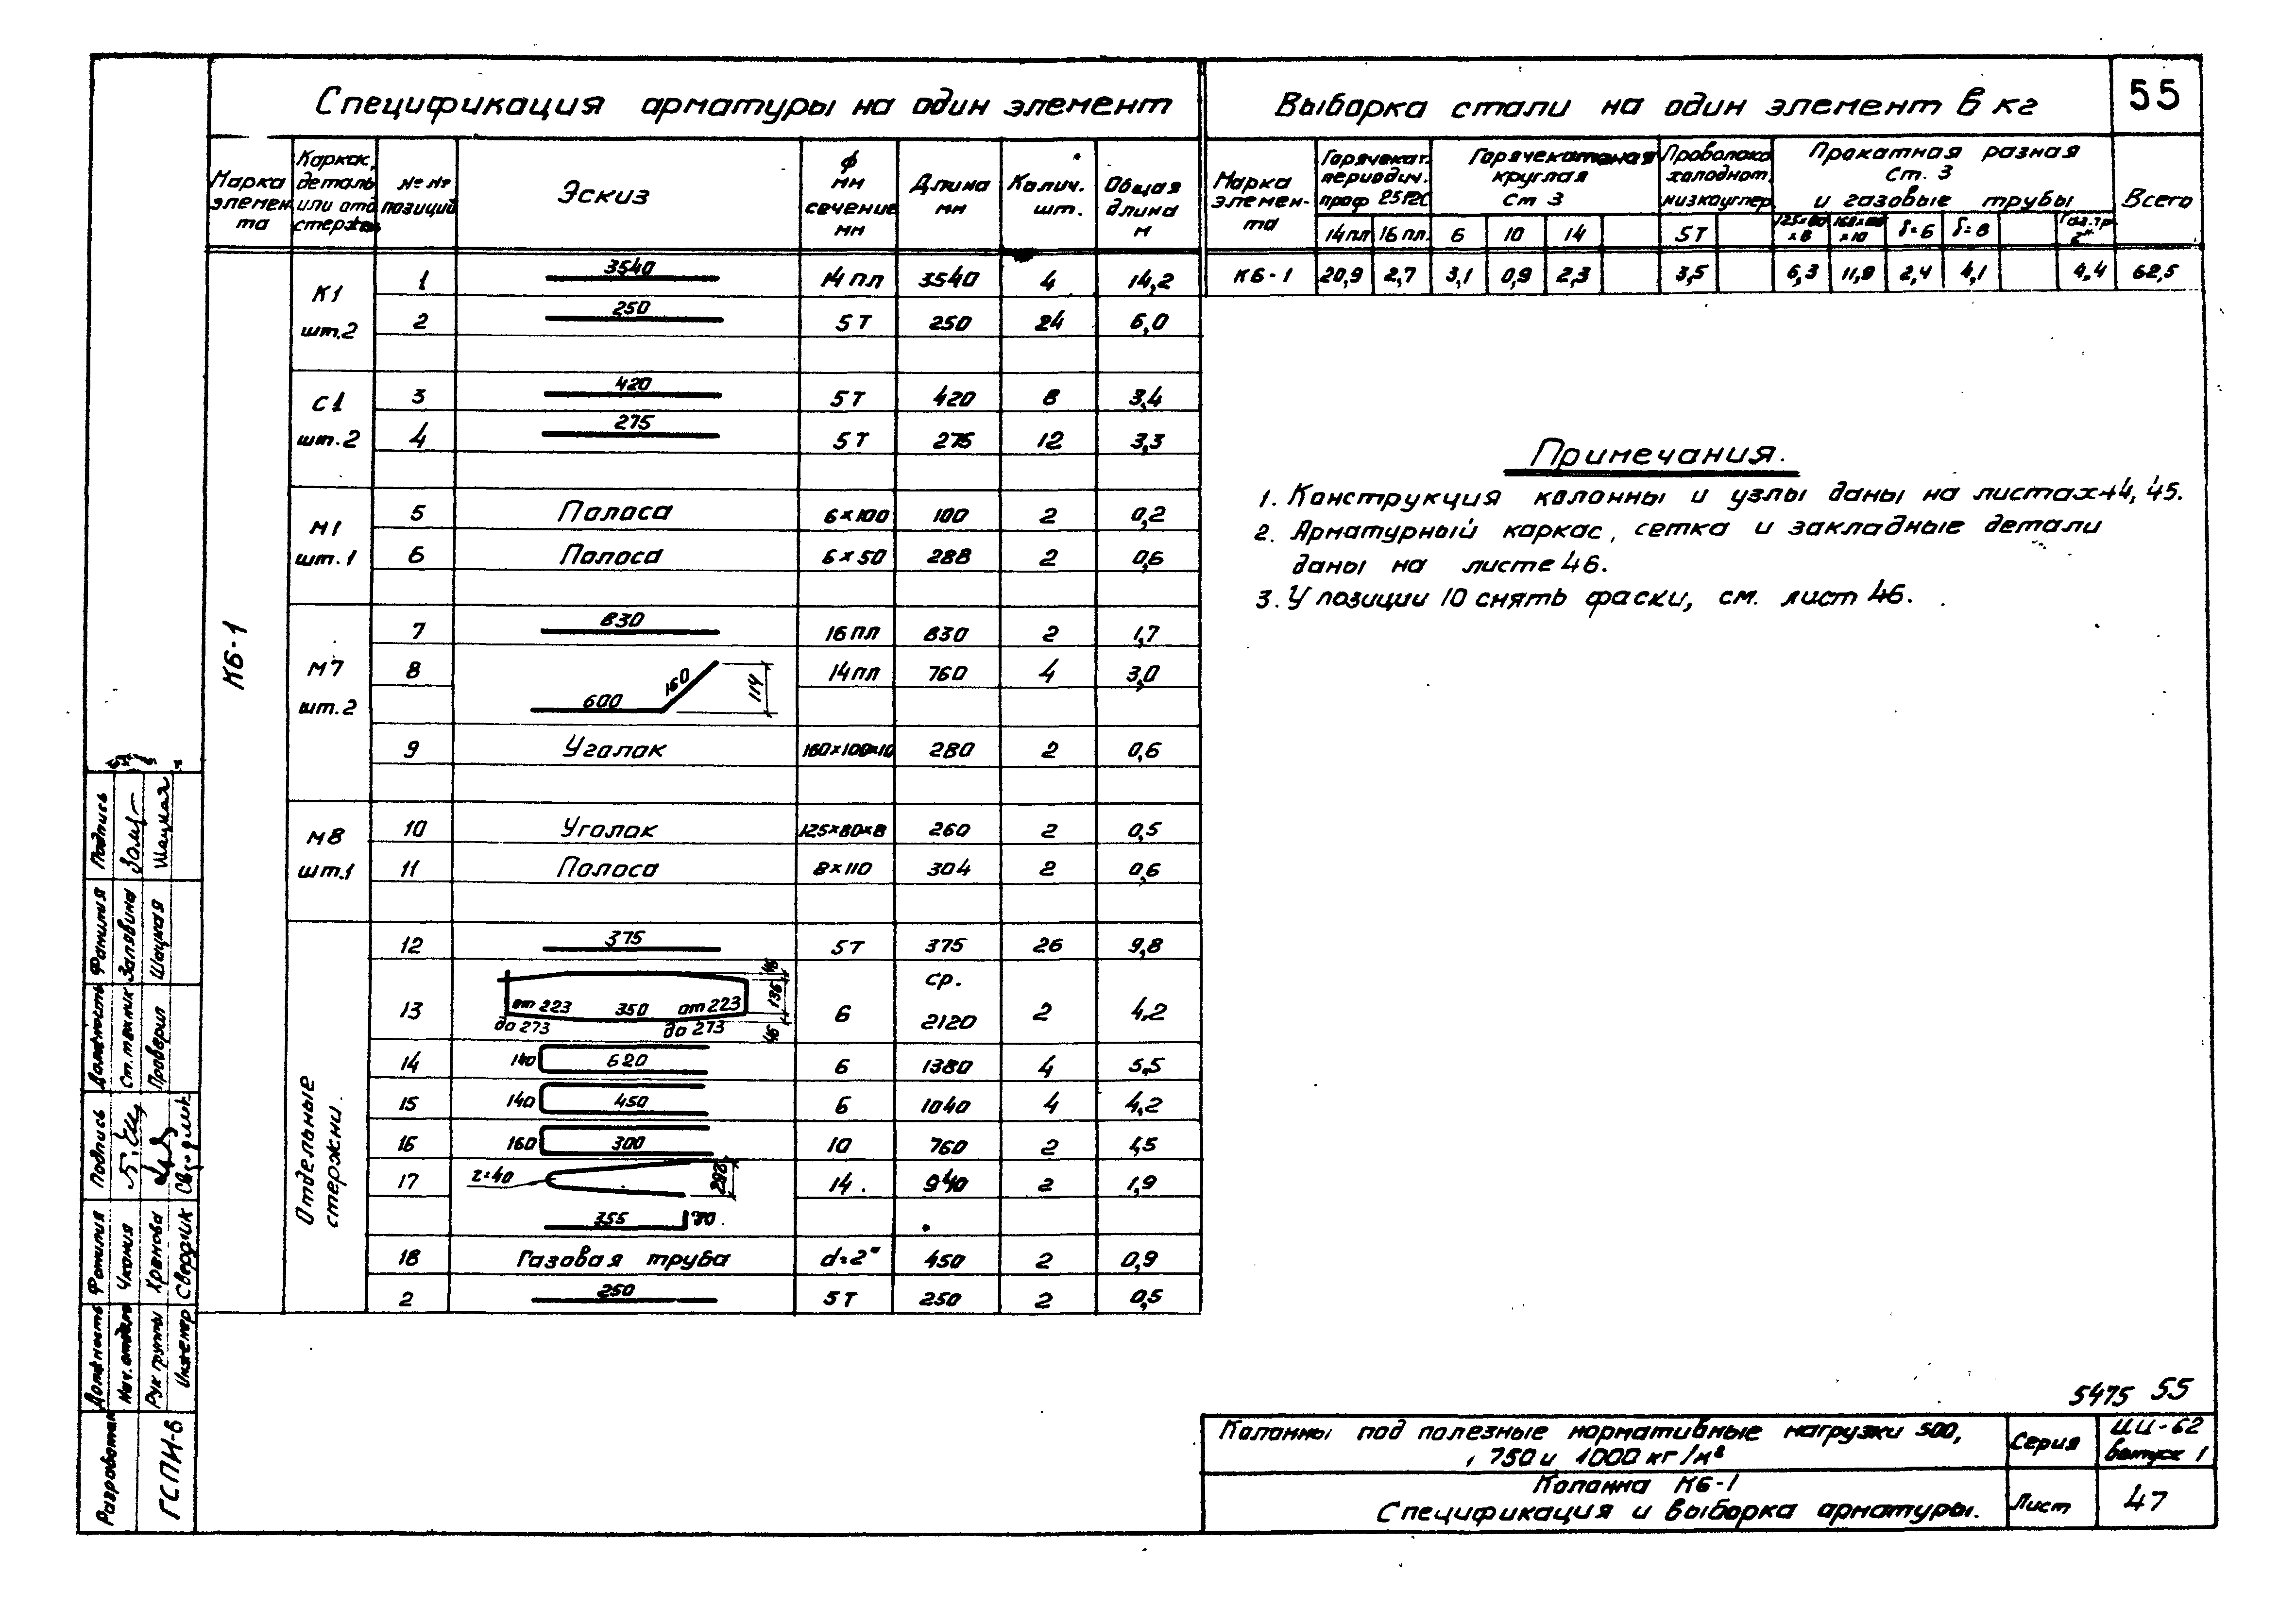 Спецификация арматуры на один элемент
Выборка стали на один элемент в кг
55
Марка элемента
Каркас, деталь или отд. стержень
№№ позиций
Эскиз
ф мм сечение мм
Длина мм
Колич. шт.
Общая длина м
К6-1
К1 шт.2
1 3540 14пл 3540 4 14,2
2 250 5Т 250 24 6,0
С1 шт.2
3 420 5Т 420 8 3,4
4 275 5Т 275 12 3,3
М1 шт.1
5 Полоса 6×100 100 2 0,2
6 Полоса 6×50 288 2 0,6
М7 шт.2
7 830 16пл 830 2 1,7
8 600 160 114 14пл 760 4 3,0
9 Уголок 160×100×10 280 2 0,6
М8 шт.1
10 Уголок 125×80×8 260 2 0,5
11 Полоса 8×110 304 2 0,6
Отдельные стержни.
12 375 5Т 375 26 9,8
13 от 223 до 273 350 от 223 до 273 46 136 46 6 ср. 2120 2 4,2
14 140 620 6 1380 4 5,5
15 140 450 6 1040 4 4,2
16 160 300 10 760 2 1,5
17 r=40 355 14 940 2 1,9
18 Газовая труба d=2" 450 2 0,9
2 250 5Т 250 2 0,5
Марка элемента
Горячекат. периодич. проф 25Г2С
Горячекатаная круглая Ст 3
Проволока холоднот. низкоуглер.
Прокатная разная Ст. 3 и газовые трубы
Всего
14пл 16пл. 6 10 14 5Т 125×80×8 160×100×10 δ=6 δ=8 Газ.тр. 2"
К6-1 20,9 2,7 3,1 0,9 2,3 3,5 6,3 11,9 2,4 4,1 4,4 62,5
Примечания.
1. Конструкция колонны и узлы даны на листах 44, 45.
2. Арматурный каркас, сетка и закладные детали
даны на листе 46.
3. У позиции 10 снять фаски, см. лист 46.
5475 55
Колонны под полезные нормативные нагрузки 500,
750 и 1000 кг/м²
Серия
ИИ-62
выпуск 1
Колонна К6-1
Спецификация и выборка арматуры.
Лист
47
Подпись
Фамилия Запявина Шацкая
Должность Ст. техник Проверил
Подпись
Фамилия Чкония Хренова Свердлик
Должность Нач. отдела Рук группы Инженер
Разработан ГСПИ-6